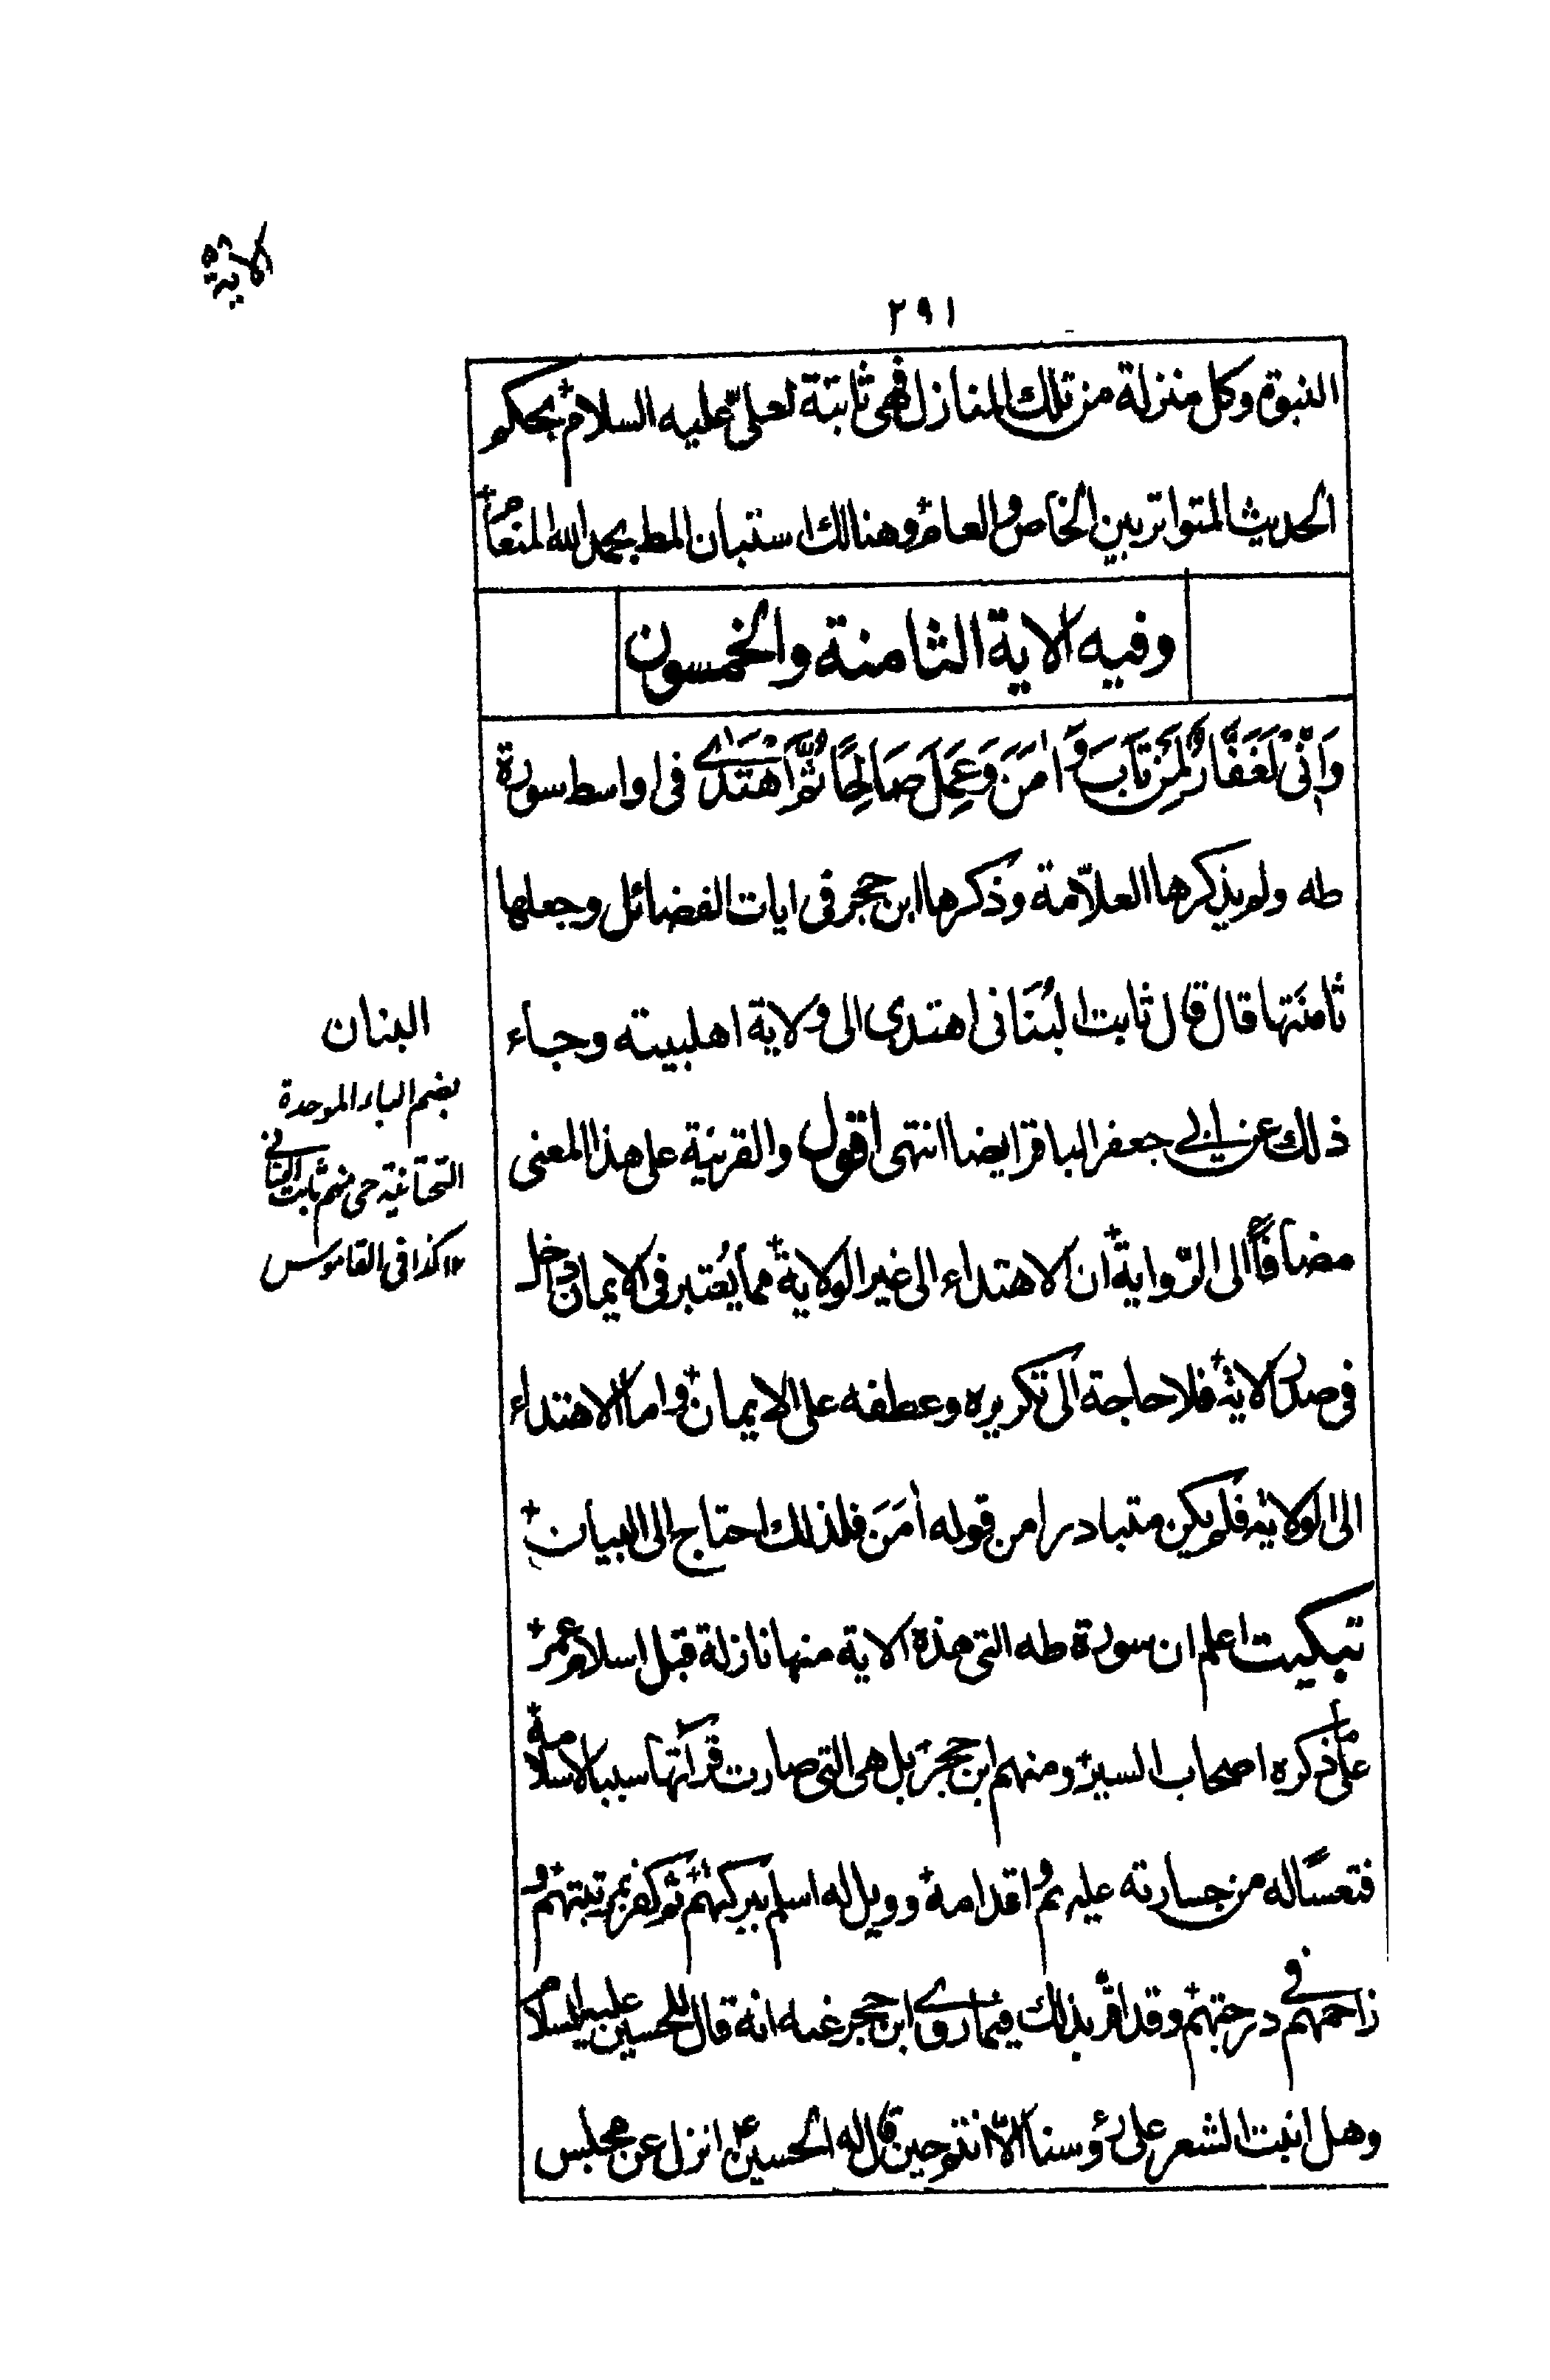 الاية
٢٩١
النبوة وكل منزلة من تلك المنازل فهي ثابتة لعليّ عليه السلام بحكم
الحديث المتواتر بين الخاص والعام وهنالك استبان المط بحمد الله المنعام
وفيه الاية الثامنة والخمسون
وَاِنّىْ لَغَفَّارٌ لِمَنْ تَابَ وَاٰمَنَ وَعَمِلَ صَالِحًا ثُمَّ اهْتَدٰى فى اواسط سورة
طه ولم يذكرها العلّامة وذكرها ابن حجر فى ايات الفضائل وجعلها
ثامنَتها قال قال ثابت البُنَانى اهتدى الى ولاية اهلبيته وجاء
ذلك عن ابي جعفر الباقر ايضا انتهى اقول والقرينة على هذا المعنى
مضافًا الى الرّواية ان الاهتداء الى غير الولاية مما يُعتبر فى الايمان دخل
فى صدر الاية فلا حاجة الى تكريره وعطفه على الايمان واما الاهتداء
الى الولاية فلم يكن متبادرا من قوله اٰمَنَ فلذلك احتاج الى البيان
تبكيت اعلم ان سورة طه التى هذه الاية منها نازلة قبل اسلام عمر
على ما ذكره اصحاب السير ومنهم ابن حجر بل هى التى صارت قرآتها سببا لاسلامه
فتعسًا له من جسارته عليهم واقدامه وويل له اسلم ببركتهم ثم كفر بمرتبتهم و
زاحمهم فى درجتهم وقد اقرّ بذلك فيما روى ابن حجر عنه انه قال للحسين عليه السلام
وهل انبت الشعر على رؤسنا الّا انتم حين قال له الحسين انزل عن مجلس
البنان
بضم الباء الموحدة
التحتانية حى منهم ثابت البنانى
كذا فى القاموس ١٢